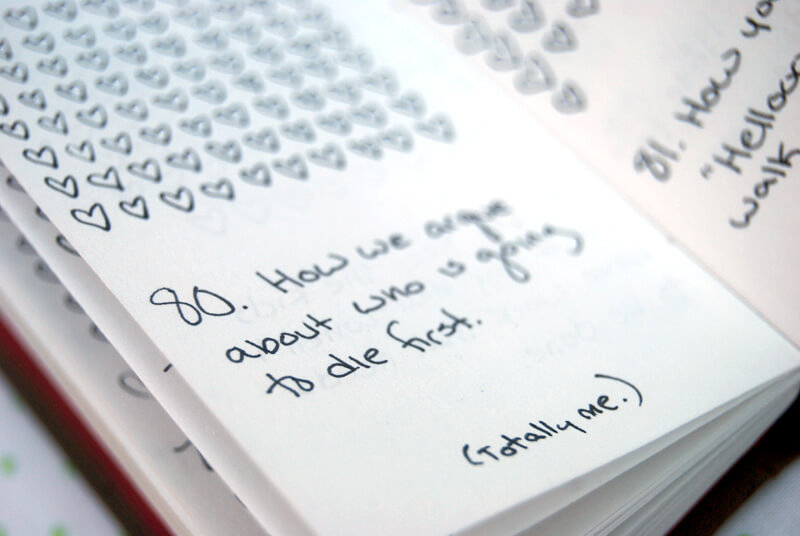 80. How we argue
about who is going
to die first.
(Totally me.)
81. How yo
"Helloo
walk